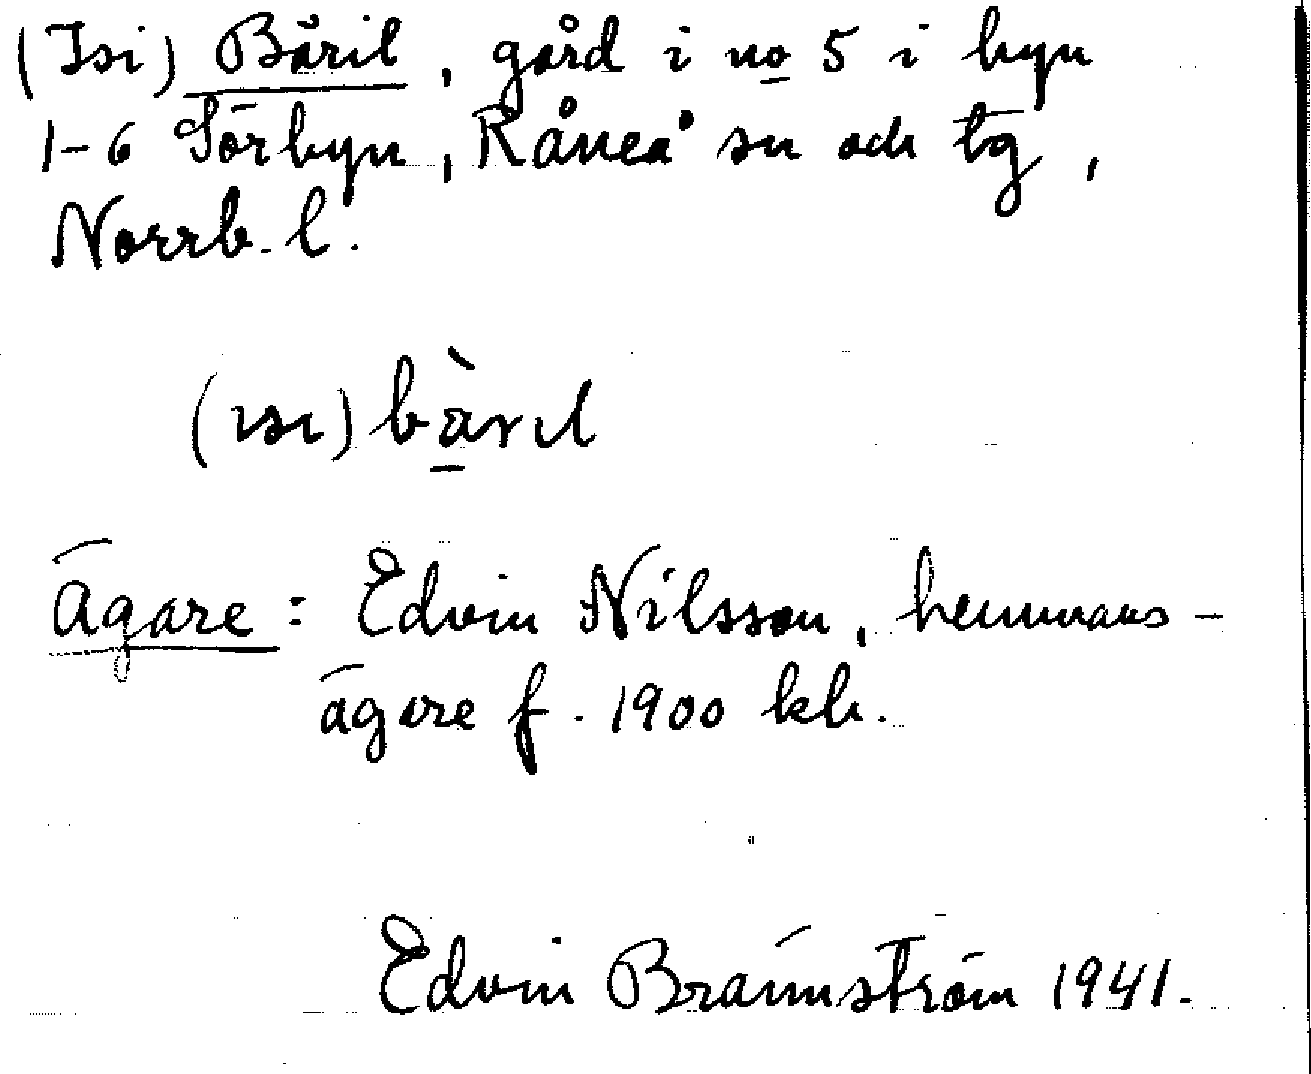 (Isi) Băril, gård i no 5 i byn
1-6 Sörbyn, Råneå sn och tg,
Norrb. l.
(ɩsɩ) bàrɩl
Ägare: Edvin Nilsson, hemmans-
ägare f. 1900 kh.
Edvin Brännström 1941.